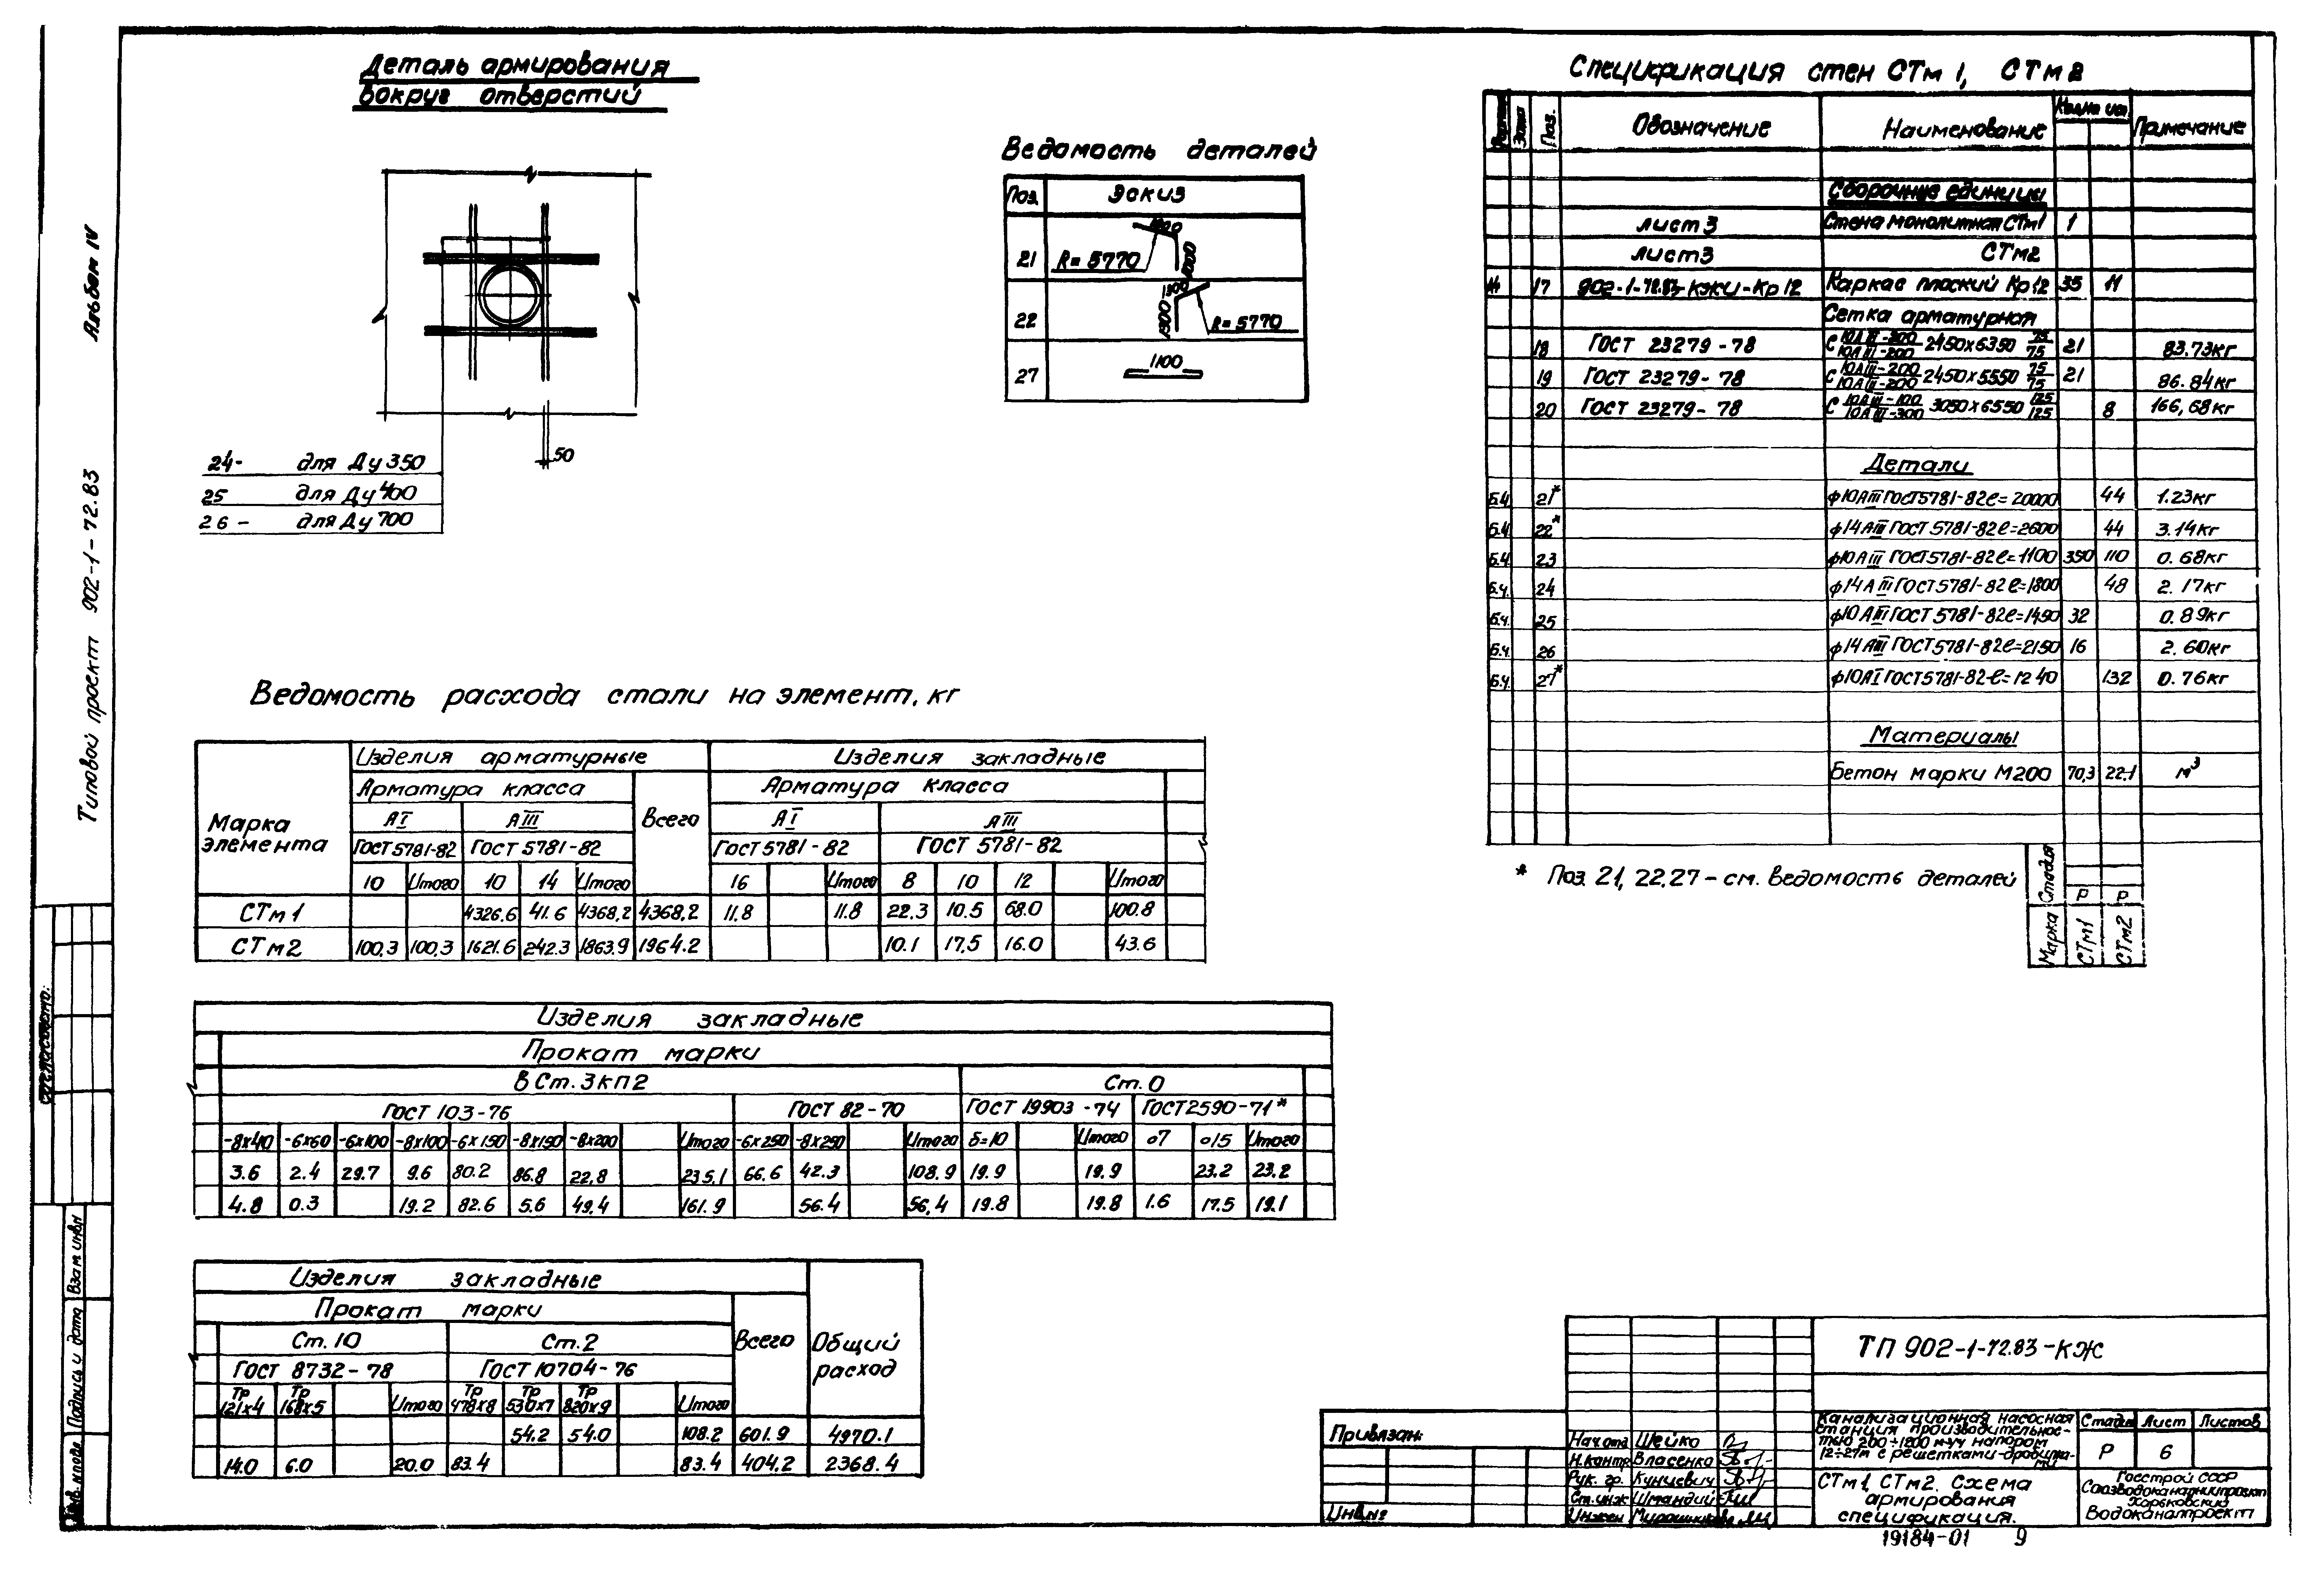 Деталь армирования
вокруг отверстий
24- для Ду 350
25 для Ду 400
26- для Ду 700
50
Ведомость деталей
Поз. Эскиз
21 R=5770 1000 1000
22 1300 1300 R=5770
27 1100
Спецификация стен СТм 1, СТм 2
Зона Поз. Обозначение Наименование Примечание
Сборочные единицы
лист 3 Стена монолитная СТм1 1
лист 3 СТм2
17 902-1-72.83-КЖИ-Кр12 Каркас плоский Кр12 35 11
Сетка арматурная
18 ГОСТ 23279-78 С 10АIII-200/10АIII-200 2450х6350 75/75 21 83.73кг
19 ГОСТ 23279-78 С 10АIII-200/10АIII-200 2450х5550 75/75 21 86.84кг
20 ГОСТ 23279-78 С 10АIII-100/10АIII-300 3050х6550 125/125 8 166,68кг
Детали
Б.ч. 21* ф10АIII ГОСТ5781-82 ℓ=20000 44 1.23кг
Б.ч. 22* ф14АIII ГОСТ5781-82 ℓ=2600 44 3.14кг
Б.ч. 23 ф10АIII ГОСТ5781-82 ℓ=1100 350 110 0.68кг
Б.ч. 24 ф14АIII ГОСТ5781-82 ℓ=1800 48 2.17кг
Б.ч. 25 ф10АIII ГОСТ5781-82 ℓ=1450 32 0.89кг
Б.ч. 26 ф14АIII ГОСТ5781-82 ℓ=2150 16 2.60кг
Б.ч. 27* ф10АI ГОСТ5781-82 ℓ=1240 132 0.76кг
Материалы
Бетон марки М200 70,3 22.1 м³
* Поз. 21, 22, 27 - см. ведомость деталей
Стадия Р Р
Марка СТм1 СТм2
Ведомость расхода стали на элемент, кг
Марка элемента Изделия арматурные Изделия закладные
Арматура класса Всего Арматура класса
АI АIII АI АIII
ГОСТ5781-82 ГОСТ 5781-82 ГОСТ5781-82 ГОСТ 5781-82
10 Итого 10 14 Итого 16 Итого 8 10 12 Итого
СТм1 4326.6 41.6 4368,2 4368,2 11.8 11.8 22.3 10.5 68.0 100.8
СТм2 100,3 100,3 1621.6 242.3 1863.9 1964.2 10.1 17,5 16.0 43.6
Изделия закладные
Прокат марки
ВСт.3кп2 Ст.0
ГОСТ 103-76 ГОСТ 82-70 ГОСТ 19903-74 ГОСТ2590-71*
-8х40 -6х60 -6х100 -8х100 -6х150 -8х150 -8х200 Итого -6х250 -8х250 Итого δ=10 Итого о7 о15 Итого
3.6 2.4 29.7 9.6 80.2 86.8 22,8 235,1 66.6 42.3 108.9 19.9 19.9 23.2 23.2
4.8 0.3 19.2 82.6 5.6 49,4 161.9 56.4 56,4 19.8 19.8 1.6 17.5 19.1
Изделия закладные
Прокат марки Всего Общий расход
Ст.10 Ст.2
ГОСТ 8732-78 ГОСТ 10704-76
Тр 121х4 Тр 168х5 Итого Тр 478х8 Тр 530х7 Тр 820х9 Итого
54.2 54.0 108.2 601.9 4970.1
14.0 6.0 20.0 83.4 83.4 404,2 2368.4
Альбом IV
Типовой проект 902-1-72.83
Согласовано:
Взам инв.№
Подпись и дата
Инв.№подл
Привязан:
Инв.№
ТП 902-1-72.83-КЖ
Канализационная насосная
станция производительнос-
тью 200÷1200 м³/ч напором
12÷27м с решетками-дробилка-
ми
Стадия Лист Листов
Р 6
СТм1, СТм2. Схема
армирования
спецификация.
Госстрой СССР
Союзводоканалниипроект
Харьковский
Водоканалпроект
Нач.отд Шейко
Н.контр Власенко
Рук. гр. Кунцевич
Ст.инж Шмандий
Инжен
19184-01 9